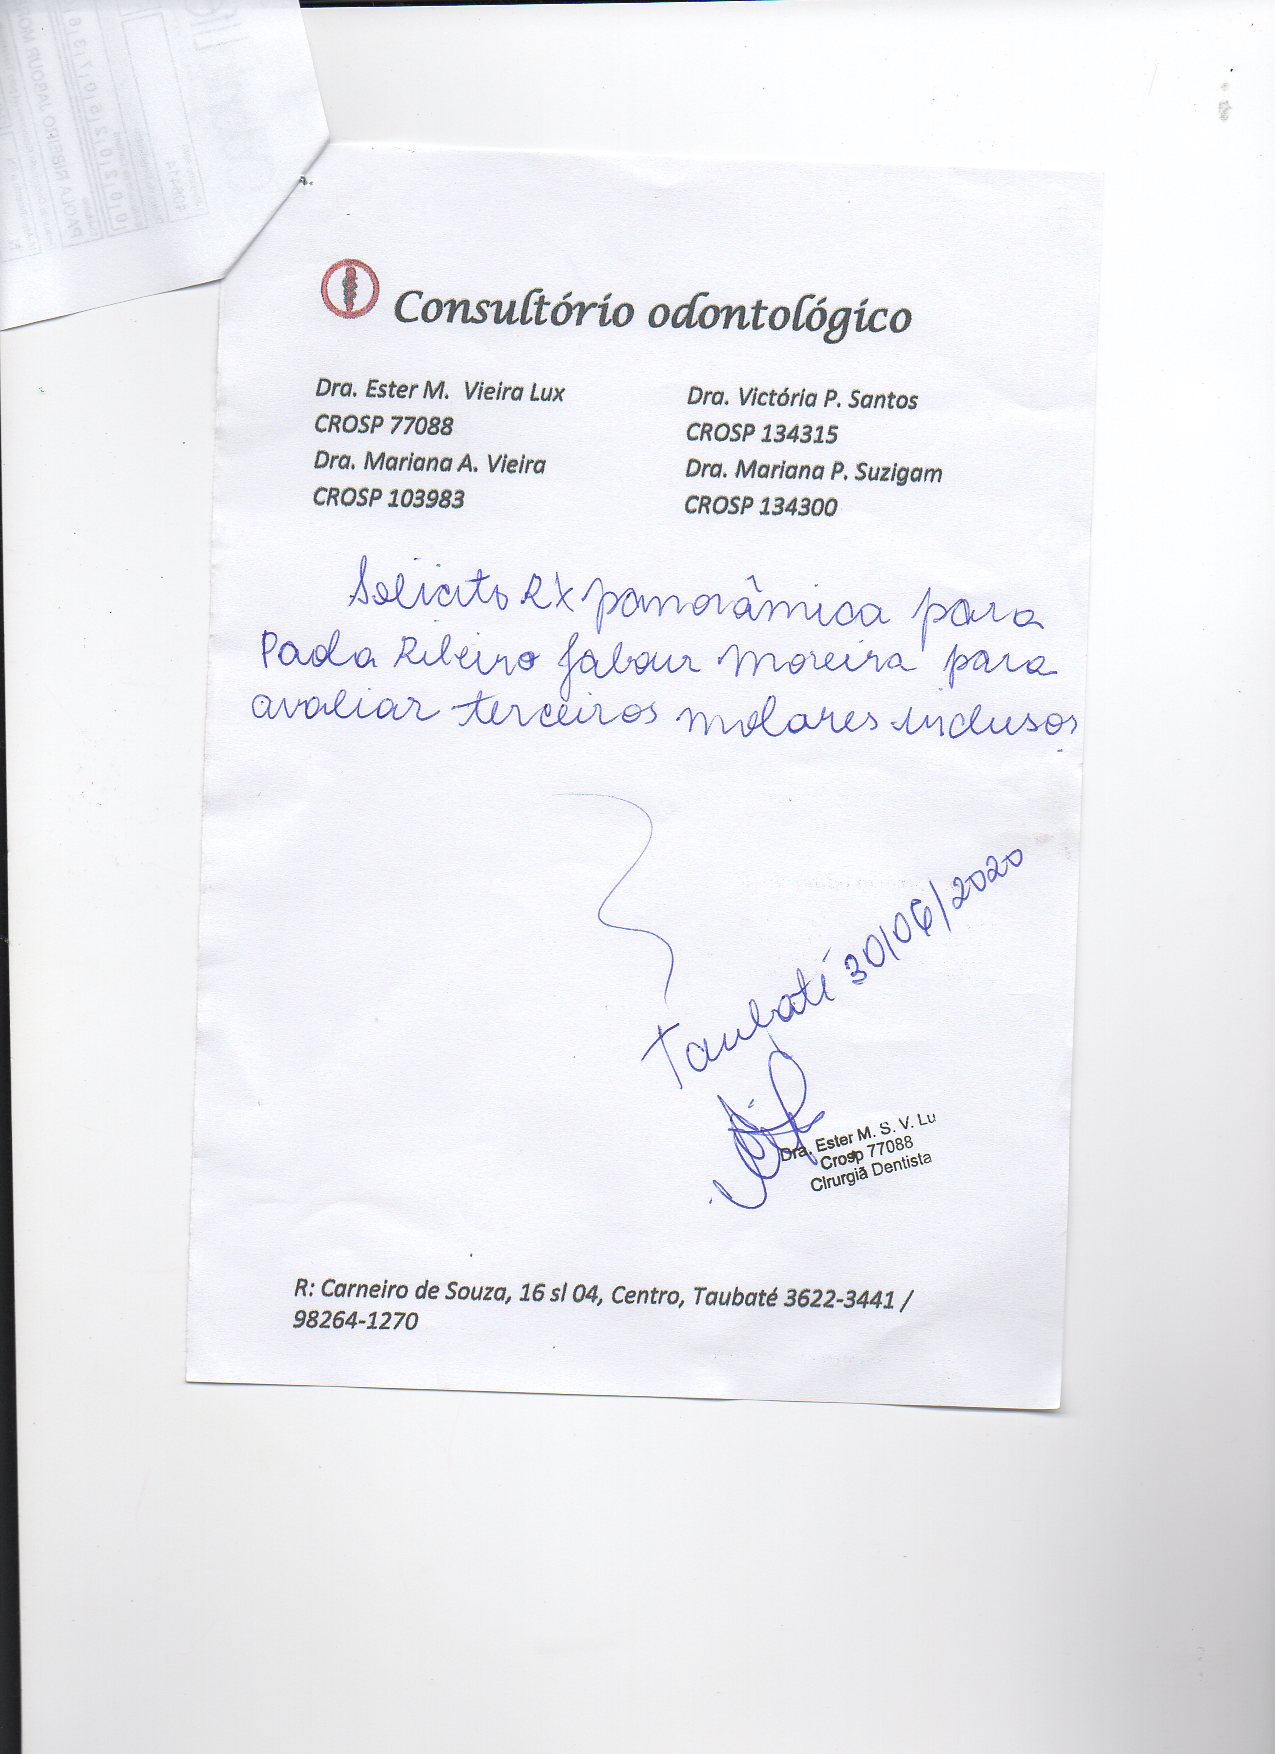 Consultório odontológico
Dra. Ester M. Vieira Lux
CROSP 77088
Dra. Mariana A. Vieira
CROSP 103983
Dra. Victória P. Santos
CROSP 134315
Dra. Mariana P. Suzigam
CROSP 134300
Solicito RX panorâmica para
Paola Ribeiro Jabour Moreira para
avaliar terceiros molares inclusos
Taubaté 30/06/2020
Dra. Ester M. S. V. Lu
Crosp 77088
Cirurgiã Dentista
R: Carneiro de Souza, 16 sl 04, Centro, Taubaté 3622-3441 /
98264-1270